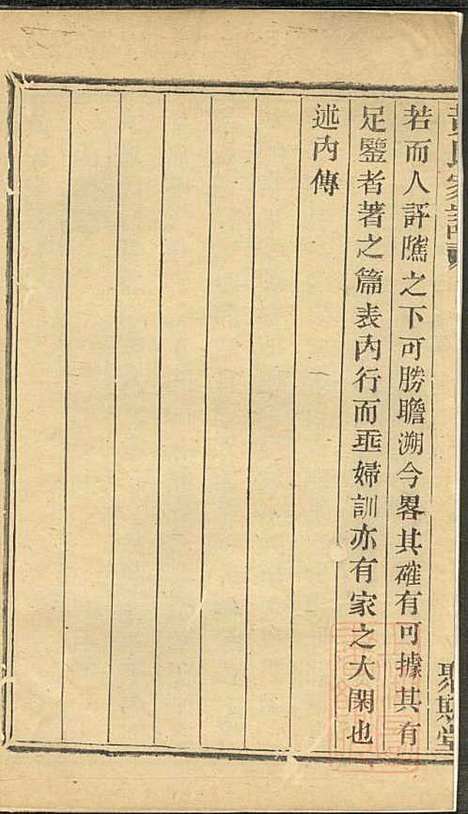 黃氏家譜
聚斯堂
若而人評隲之下可勝瞻溯今畧其確有可據其有
足鑒者著之篇表內行而垂婦訓亦有家之大閑也
述內傳